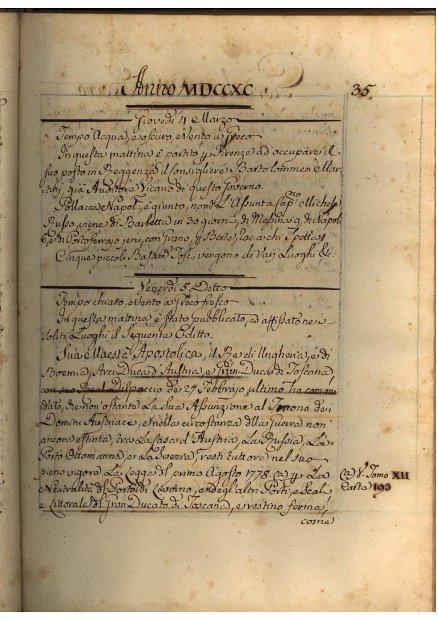 Anno MDCCXC
35
Giovedì 4 Marzo
Tempo Acqua, e oscuro, e Vento a Greco
In questa mattina è partito p Firenze ad occupare il
suo posto in Reggenza il Consigliere Bartolommeo Mar-
tini, già Auditore Vicario di questo Governo.
Pollacca Napol.ª è giunto, nom.ª L'Assunta Cap.no Michele
Russo, viene di Barletta in 30 giorni, di Messina 9, di Napoli
e di Portoferrajo jeri, con Grano, p
Cinque piccoli Bastim. Tosc. vengono di Varj Luoghi &c.
Venerdì 5 Detto
Tempo chiaro, e Vento a Greco fresco
In questa mattina è stato pubblicato, ed affisso ne
soliti Luoghi il Seguente Editto.
Sua Maestà Apostolica, il Re di Ungheria, e di
Boemia, Arci Duca d'Austria, e Gran Duca di Toscana
con suo Real Dispaccio de 27 Febbrajo ultimo ha coman-
dato, che non ostante La Sua Assunzione al Trono de
Dominj Austriaci, e nella circostanza della Guerra non
ancora estinta, tra La Casa d'Austria, La Russia, La
Porta Ottomanna, e La Svezia, resti tuttora nel suo
pieno vigore La Legge del primo Agosto 1778 (a) p La
Neutralità del Porto di Livorno, e degl'altri Porti, e Scali
e Littorale del Gran Ducato di Toscana, e restino ferme,
come
(a) V. Tomo XII
Carta 193